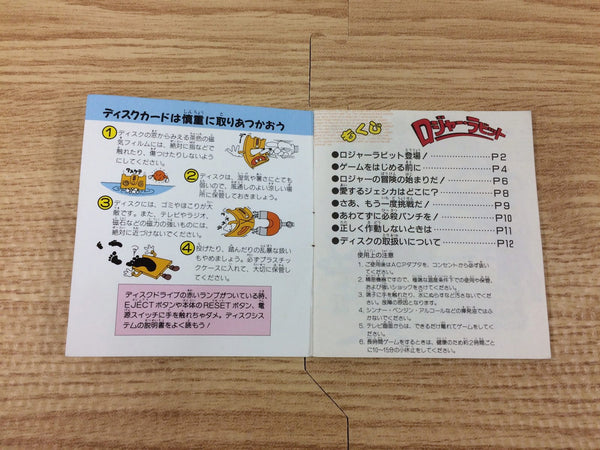 ディスクカードは慎重に取りあつかおう
① ディスクの窓からみえる茶色の磁
気フィルムには、絶対に指などで
触れたり、傷つけたりしないよう
にしてください。
② ディスクは、湿気や暑さにとても
弱いので、風通しのよい涼しい場
所に保管しておきましょう。
③ ディスクには、ゴミやほこりが大
敵です。また、テレビやラジオ、
磁石などの磁力の強いものには、
絶対に近づけないでください。
④ 投げたり、踏んだりの乱暴な扱い
もやめましょう。必ずプラスチッ
クケースに入れて、大切に保管し
てください。
ディスクドライブの赤いランプがついている時、
EJECTボタンや本体のRESETボタン、電
源スイッチに手を触れちゃダメ。ディスクシス
テムの説明書をよく読もう！
もくじ
ロジャーラビット
●ロジャーラビット登場！ P2
●ゲームをはじめる前に P4
●ロジャーの冒険の始まりだ！ P6
●愛するジェシカはどこに？ P8
●さあ、もう一度挑戦だ！ P9
●あわてずに必殺パンチを！ P10
●正しく動作しないときは P11
●ディスクの取扱いについて P12
使用上の注意
1. ご使用後はACアダプタを、コンセントから必ず抜い
てください。
2. 精密機器ですので、極端な温度条件下での使用や保管、
および強いショックをさけてください。
3. 端子に手を触れたり、水にぬらすなど汚さないでくだ
さい。故障の原因となります。
4. シンナー・ベンジン・アルコールなどの揮発油では
ふかないでください。
5. テレビ画面からは、できるだけ離れてゲームをしてく
ださい。
6. 長時間ゲームをするときは、健康のため約2時間ごと
に10〜15分の小休止をしてください。